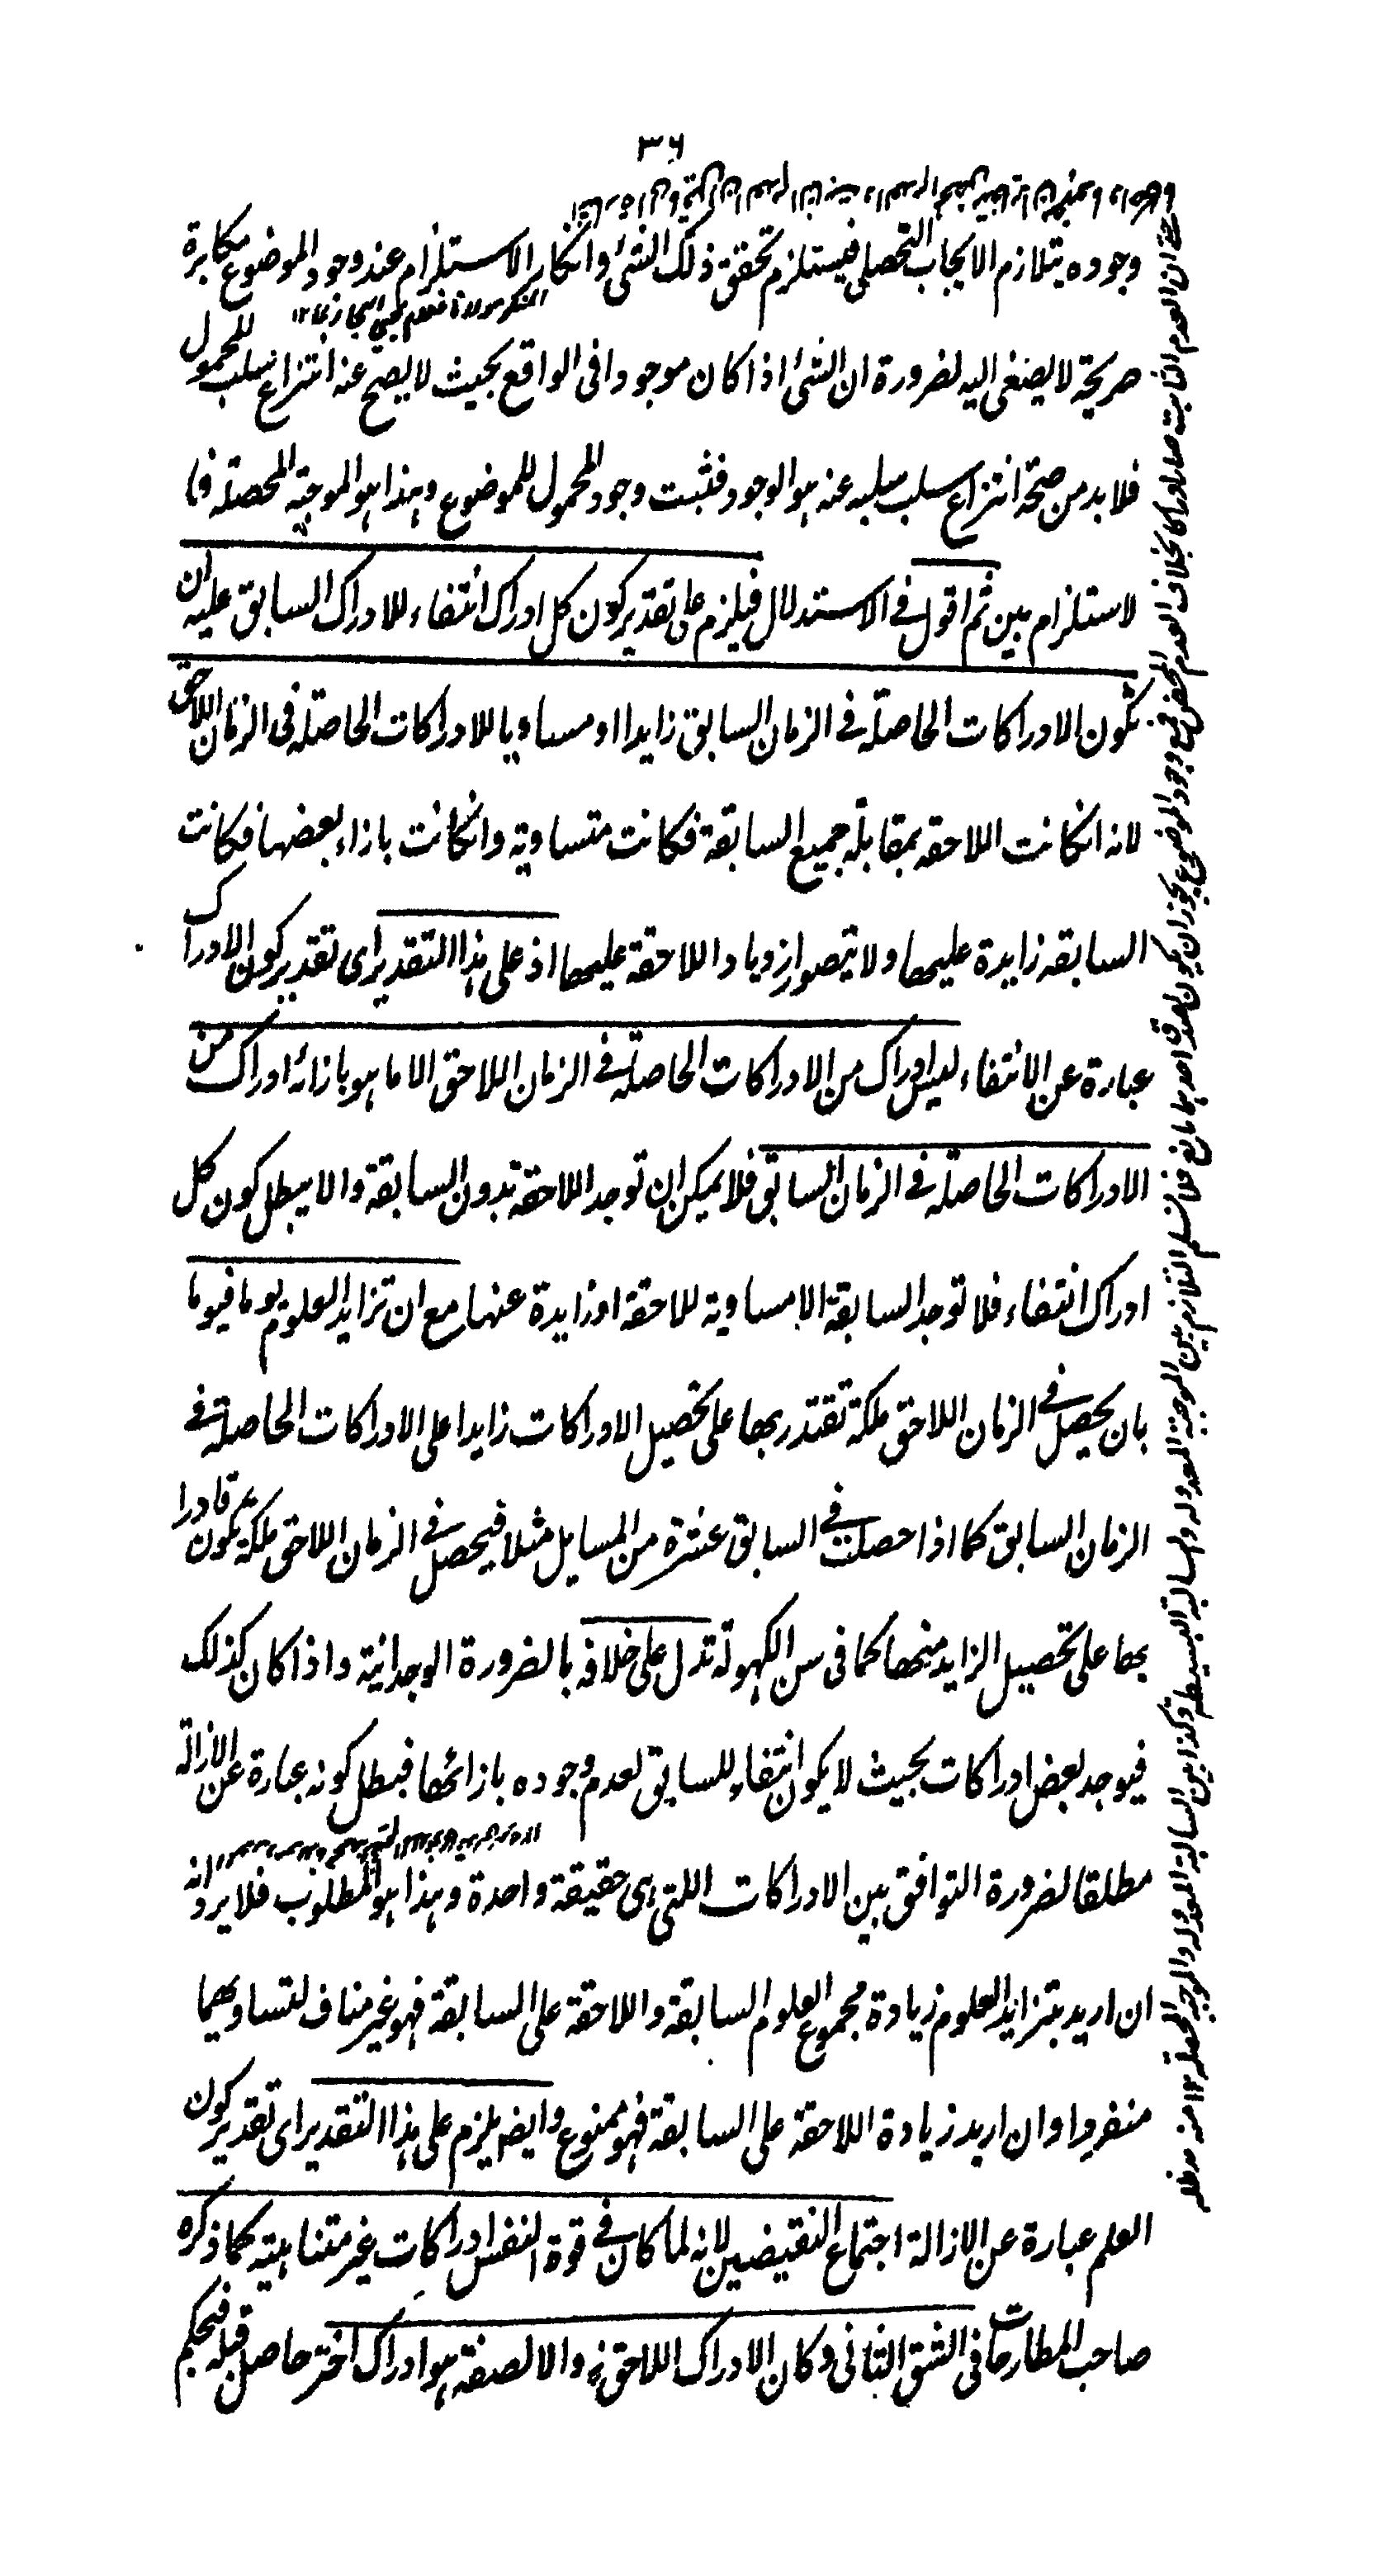 ٣٦
وجوده يتلازم الايجاب التحصلى فيستلزم تحقق ذلك الشئ وانكار الاستلزام عند وجود الموضوع مكابرة
صريحة لا يصغى اليه لضرورة ان الشئ اذا كان موجودا فى الواقع بحيث لا يصح عنه انتزاع سلب المحمول
فلا بد من صحة انتزاع سلب سلبه عنه هو الوجود فثبت وجود المحمول للموضوع وهذا هو الموجبة المحصلة فا
لاستلزام بين ثم اقول فى الاستدلال فيلزم على تقدير كون كل ادراك انتفاء للادراك السابق عليه ان
تكون الادراكات الحاصلة فى الزمان السابق زايدا او مساويا للادراكات الحاصلة فى الزمان اللاحق
لانه انكانت اللاحقه بمقابلة جميع السابقة فكانت متساوية وانكانت بازاء بعضها فكانت
السابقه زايدة عليها ولا يتصور ازدياد اللاحقة عليها اذ على هذا التقدير اى تقدير كون الادراك
عبارة عن الانتفاء ليس ادراك من الادراكات الحاصلة فى الزمان اللاحق الا ما هو بازائه ادراك من
الادراكات الحاصلة فى الزمان السابق فلا يمكن ان توجد اللاحقة بدون السابقة والا يبطل كون كل
ادراك انتفاء فلا توجد السابقة الا مساوية للاحقة او زايدة عنها مع ان تزايد العلوم يوما فيوما
بان يحصل فى الزمان اللاحق ملكة تقتدر بها على تحصيل الادراكات زايدا على الادراكات الحاصلة فى
الزمان السابق كما اذا حصلت فى السابق عشرة من المسايل مثلا فيحصل فى الزمان اللاحق ملكة يكون قادرا
بها على تحصيل الزايد منها كما فى سن الكهولة تدل على خلافه بالضرورة الوجدانية واذا كان كذلك
فيوجد بعض ادراكات بحيث لا يكون انتفاء للسابق لعدم وجوده بازائها فبطل كونه عبارة عن الازالة
مطلقا لضرورة التوافق بين الادراكات اللتى هى حقيقة واحدة وهذا هو المطلوب فلا يرد انه
ان اريد بتزايد العلوم زيادة مجموع العلوم السابقة واللاحقة على السابقة فهو غير مناف لتساويهما
منفردا وان اريد زيادة اللاحقة على السابقة فهو ممنوع وايضا يلزم على هذا التقدير اى تقدير كون
العلم عبارة عن الازالة اجتماع النقيضين لانه لما كان فى قوة النفس ادراكات غير متناهية كما ذكره
صاحب المطارحات فى الشق الثانى وكان الادراك اللاحق والا لصفة هو ادراك اخر حاصل قبله فيحكم
ان العدم الثابت صار ادراكا بخلاف العدم المحض فمع وجود الموضوع يجوز ان يكون احدهما مانع فلا نسلم التلازم بين الموجبة المعدولة والسالبة البسيطة وكذا بين السالبة المعدولة والموجبة المحصلة ١٢ منه مدظله